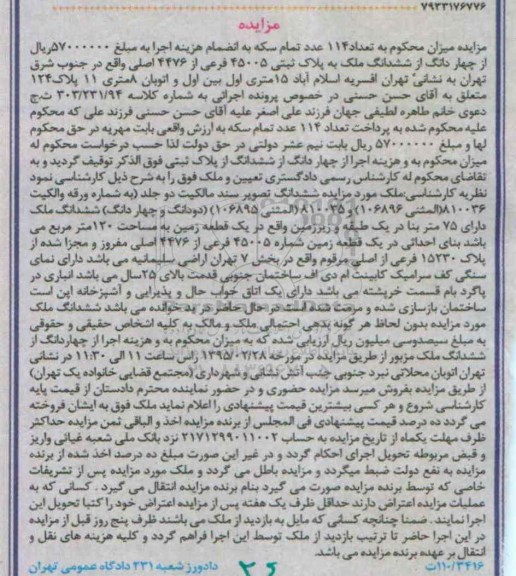 ۷۹۲۳۱۷۶۷۷۶
مزایده
مزایده میزان محکوم به تعداد ۱۱۴ عدد تمام سکه به انضمام هزینه اجرا به مبلغ ۵۷۰۰۰۰۰۰ریال
از چهار دانگ از ششدانگ ملک به پلاک ثبتی ۴۵۰۰۵ فرعی از ۴۴۷۶ اصلی واقع در جنوب شرق
تهران به نشانی تهران افسریه اسلام آباد ۱۵متری اول بین اول و اتوبان ۸متری ۱۱ پلاک۱۲۴
متعلق به آقای حسن حسنی در خصوص پرونده اجرائی به شماره کلاسه ۳۰۳/۲۳۱/۹۴ ت.ج
دعوی خانم طاهره لطیفی جهان فرزند علی اصغر علیه آقای حسن حسنی فرزند علی که محکوم
علیه محکوم شده به پرداخت تعداد ۱۱۴ عدد تمام سکه به ارزش واقعی بابت مهریه در حق محکوم
لها و مبلغ ۵۷۰۰۰۰۰۰ ریال بابت نیم عشر دولتی در حق دولت لذا حسب درخواست محکوم له
میزان محکوم به و هزینه اجرا از چهار دانگ از ششدانگ از پلاک ثبتی فوق الذکر توقیف گردید و به
تقاضای محکوم له کارشناس رسمی دادگستری تعیین و ملک فوق را به شرح ذیل کارشناسی نمود
نظریه کارشناسی:ملک مورد مزایده ششدانگ تصویر سند مالکیت دو جلد (به شماره ورقه والکیت
۸۱۰۰۳۶(المثنی ۱۰۶۸۹۶)و ۸۱۰۰۳۵ (المثنی ۱۰۶۸۹۵) (دودانگ و چهار دانگ) ششدانگ ملک
دارای ۷۵ متر بنا در یک طبقه و زیرزمین واقع در یک قطعه زمین به مساحت ۱۲۰متر مربع می
باشد بنای احداثی در یک قطعه زمین شماره ۴۵۰۰۵ فرعی از ۴۴۷۶ اصلی مفروز و مجزا شده از
پلاک ۱۵۲۳۰ فرعی از اصلی مرقوم واقع در بخش ۷ تهران اراضی سلیمانیه می باشد دارای نمای
سنگی کف سرامیک کابینت ام دی اف ساختمان جنوبی قدمت بالای ۲۵سال می باشد انباری در
پاگرد بام قسمت خرپشته می باشد دارای یک اتاق خواب حال و پذیرایی و آشپزخانه این است
ساختمان بازسازی شده و مرمت شده است در حال حاضر در ید خوانده می باشد ششدانگ ملک
مورد مزایده بدون لحاظ هر گونه بدهی احتمالی ملک و مالک به کلیه اشخاص حقیقی و حقوقی
به مبلغ سیصدوسی میلیون ریال ارزیابی شده که به میزان محکوم به و هزینه اجرا از چهاردانگ از
ششدانگ ملک مزبور از طریق مزایده در مورخه ۱۳۹۵/۰۲/۲۸ راس ساعت ۱۱ الی ۱۱:۳۰ در نشانی
تهران اتوبان محلاتی نبرد جنوبی جنب آتش نشانی و شهرداری (مجتمع قضایی خانواده یک تهران)
از طریق مزایده بفروش میرسد مزایده حضوری و در حضور نماینده محترم دادستان از قیمت پایه
کارشناسی شروع و هر کسی بیشترین قیمت پیشنهادی را اعلام نماید ملک فوق به ایشان فروخته
می گردد ده درصد قیمت پیشنهادی فی المجلس از برنده مزایده اخذ و الباقی ثمن مزایده حداکثر
ظرف مهلت یکماه از تاریخ مزایده به حساب ۲۱۷۱۲۹۹۰۱۱۰۰۲ نزد بانک ملی شعبه غیاثی واریز
و قبض مربوطه تحویل اجرای احکام گردد و در غیر این صورت مبلغ ده درصد اخذ شده از برنده
مزایده به نفع دولت ضبط میگردد و مزایده باطل می گردد و ملک مورد مزایده پس از تشریفات
خاصی که توسط برنده مزایده صورت می گیرد بنام برنده مزایده انتقال می گیرد . کسانی که به
عملیات مزایده اعتراض دارند حداقل ظرف یک هفته پس از مزایده اعتراض خود را کتبا تحویل این
اجرا نمایند . ضمنا چنانچه کسانی که مایل به بازدید از ملک می باشند ظرف پنج روز قبل از مزایده
در این اجرا حاضر تا ترتیب بازدید از ملک توسط این اجرا فراهم گردد و کلیه هزینه های نقل و
انتقال بر عهده برنده مزایده می باشد.
۱۱۰/۳۴۱۶ت دادورز شعبه ۲۳۱ دادگاه عمومی تهران